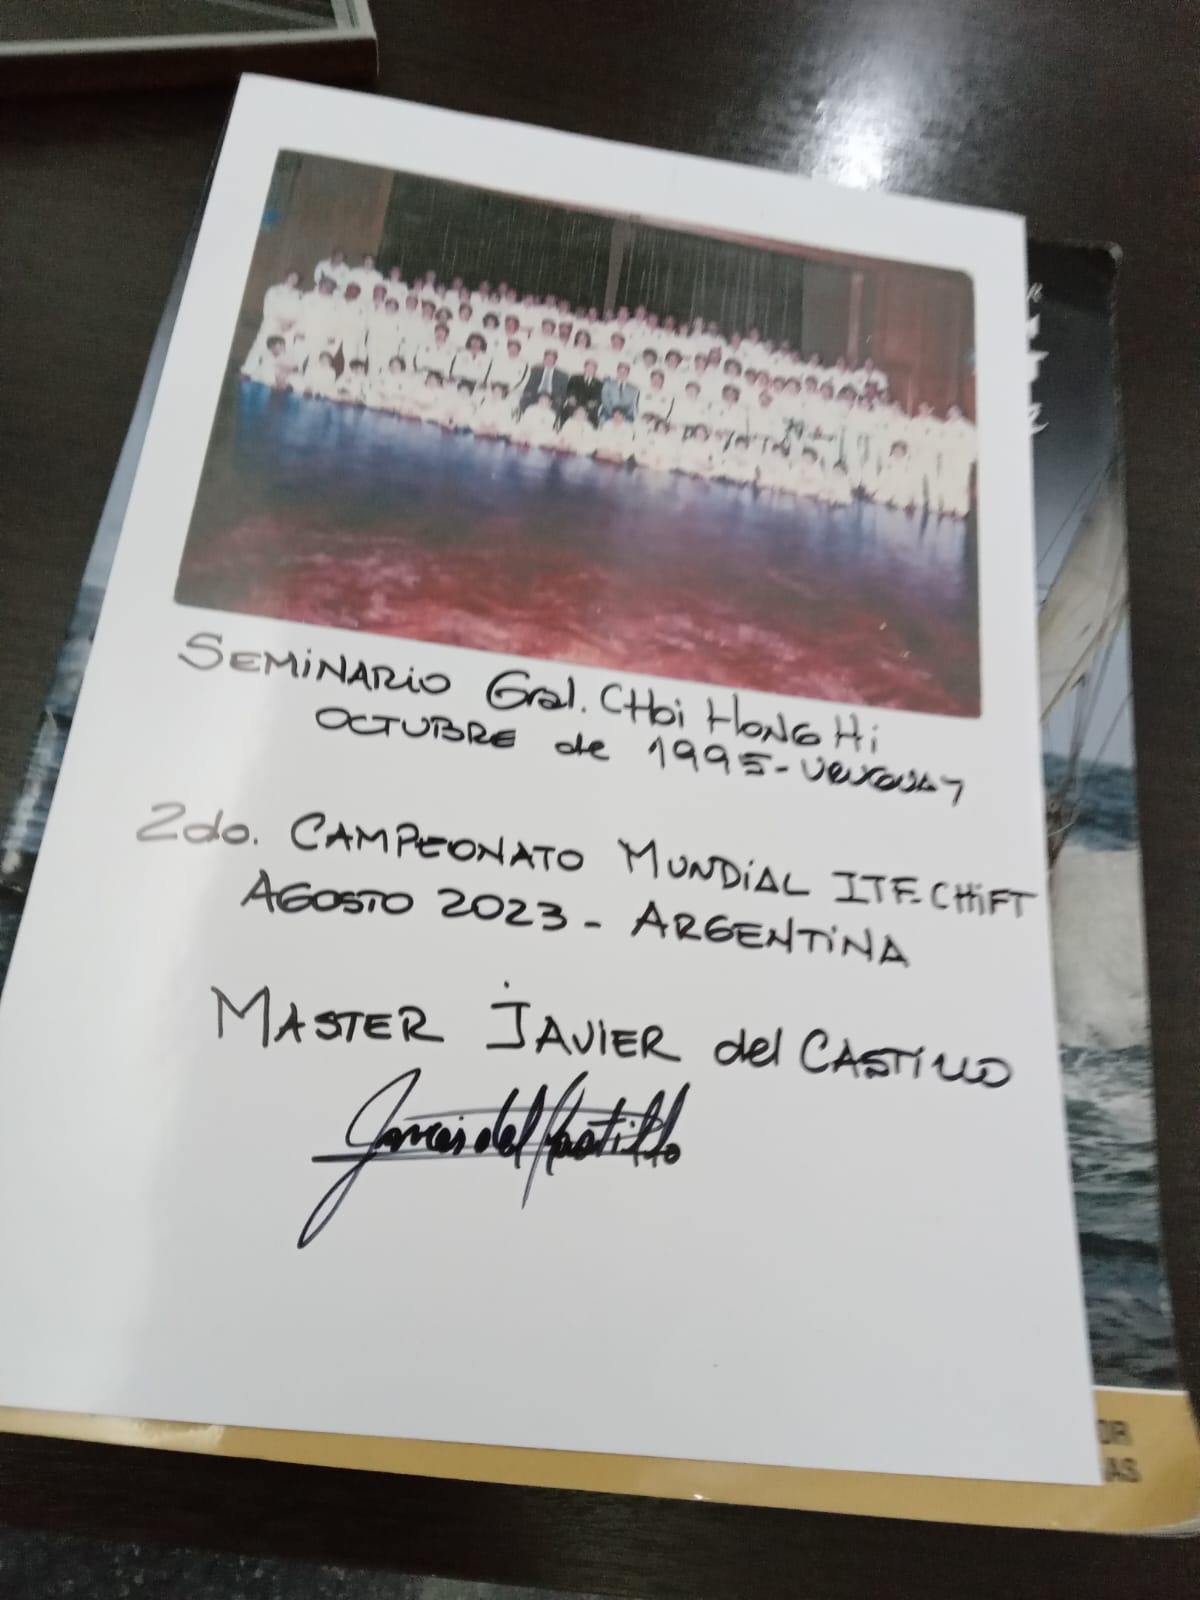 SEMINARIO Gral. CHOi HONG Hi
OCTUBRE de 1995 - URUGUAY
2do. CAMPEONATO MUNDIAL ITF-CHIFT
AGOSTO 2023 - ARGENTINA
MASTER JAVIER del CASTILLO
Javier del Castillo
OR
AS